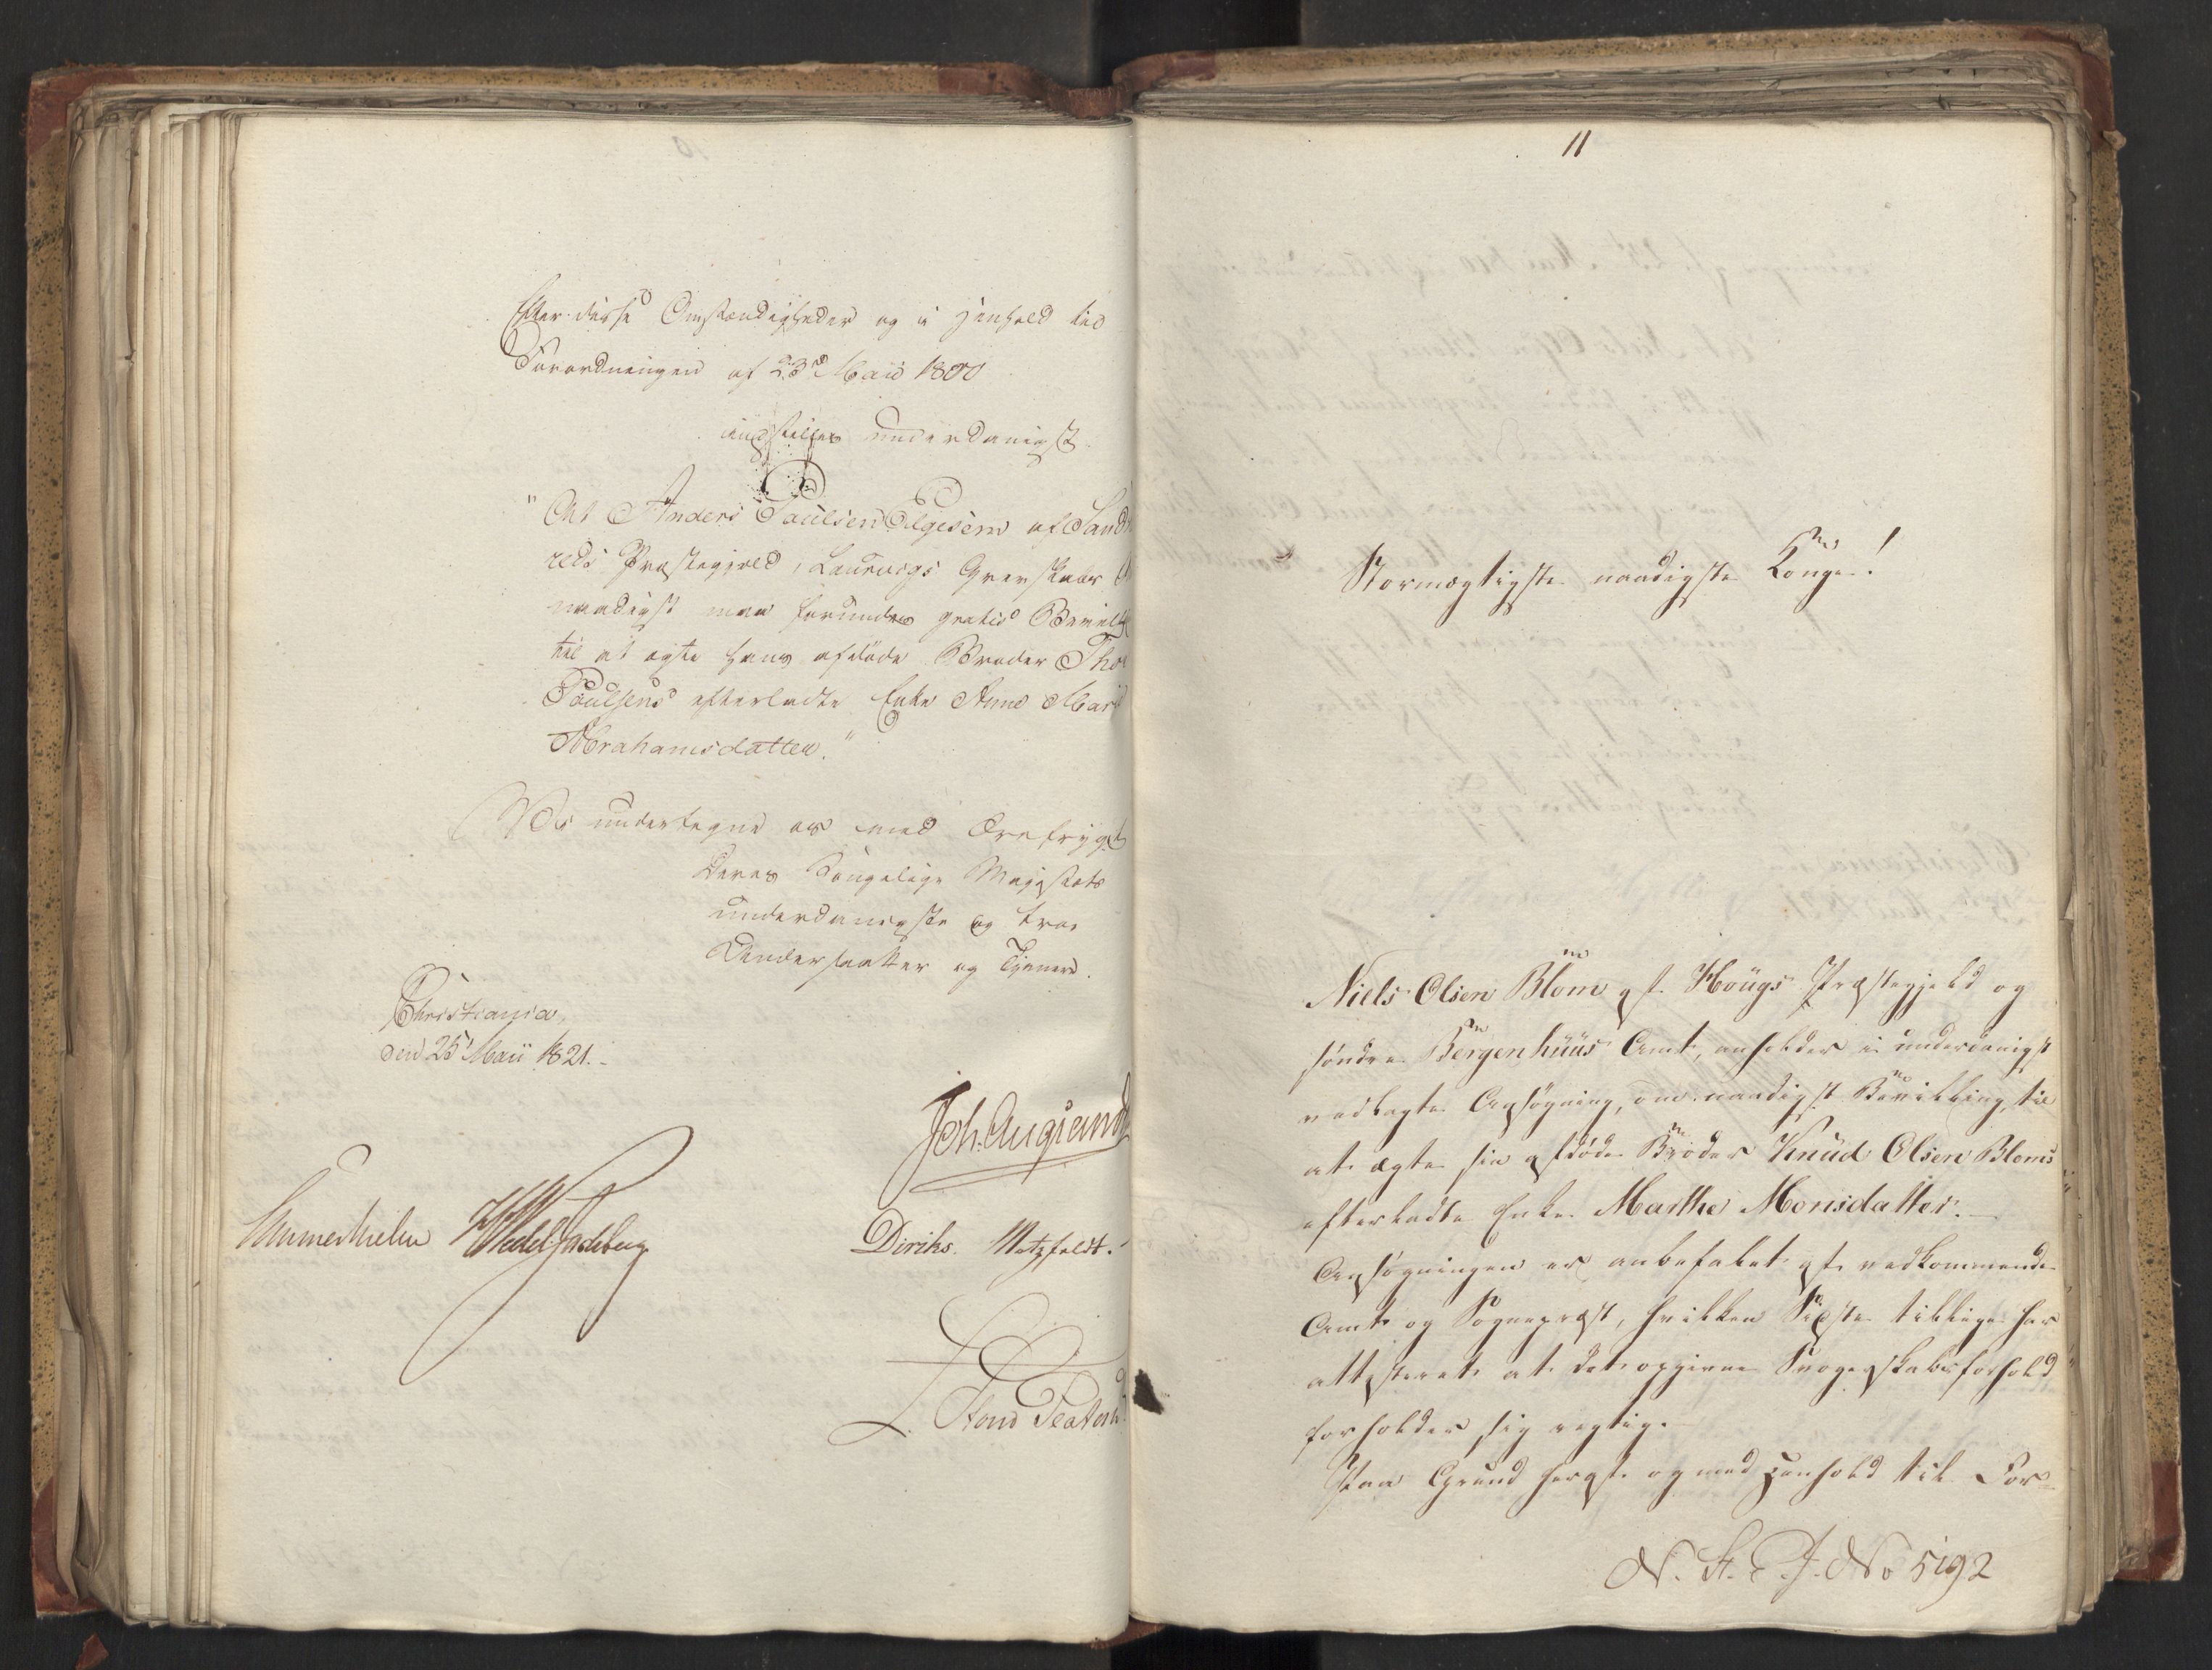 Efter disse Omstændigheder og i Henhold til
Forordningen af 23de Maii 1800
indstilles underdanigst
"At Anders Paulsen Elgesem af Sand
reds Præstegjeld, Laurvigs Grevskabs
naadigst maa forundes gratis Bevill
til at ægte hans afdöde Broder Tho
Paulsens efterladte Enke Anne Mari
Abrahamsdatter."
Vi undertegne os med Ærefrygt
Deres Kongelige Majestæts
underdanigste og troe
Undersaatter og Tjenere.
Christiania,
den 25 Maii 1821.
Joh. Collett
Sommerhielm Wedel Jarlsberg
Diriks. Motzfeldt.
L. Stoud Platou
11
Stormægtigste naadigste Konge!
Niels Olsen Blom af Hougs Præstegjeld og
söndre Bergenhuus Amt, anholder i underdanigst
vedlagte Ansögning, om naadigst Bevilling, til
at ægte sin afdöde Broder Knud Olsen Bloms
efterladte Enke Marthe Monsdatter.
Ansögningen er anbefalet af vedkommende
Amt og Sognepræst, hvilken Sidste tillige har
attesteret at det opgivne Svogerskabsforhold
forholder sig rigtig.
Paa Grund heraf og med Henhold til For-
N. St. J. No 5192